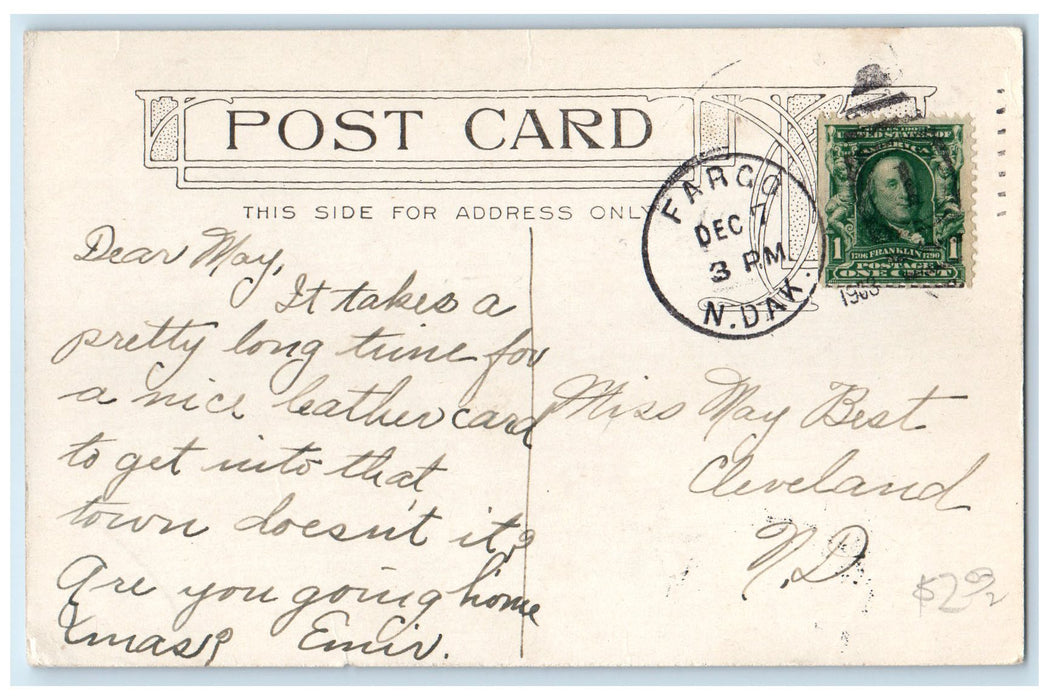 POST CARD
THIS SIDE FOR ADDRESS ONLY
FARGO
DEC 7
3 PM
N. DAK.
UNITED STATES OF
AMERICA
1
1706 FRANKLIN 1790
1
POSTAGE
ONE CENT
Dear May,
It takes a
pretty long time for
a nice leather card
to get into that
town doesn't it?
Are you going home
Xmas?
Miss May Best
Cleveland
N.D.